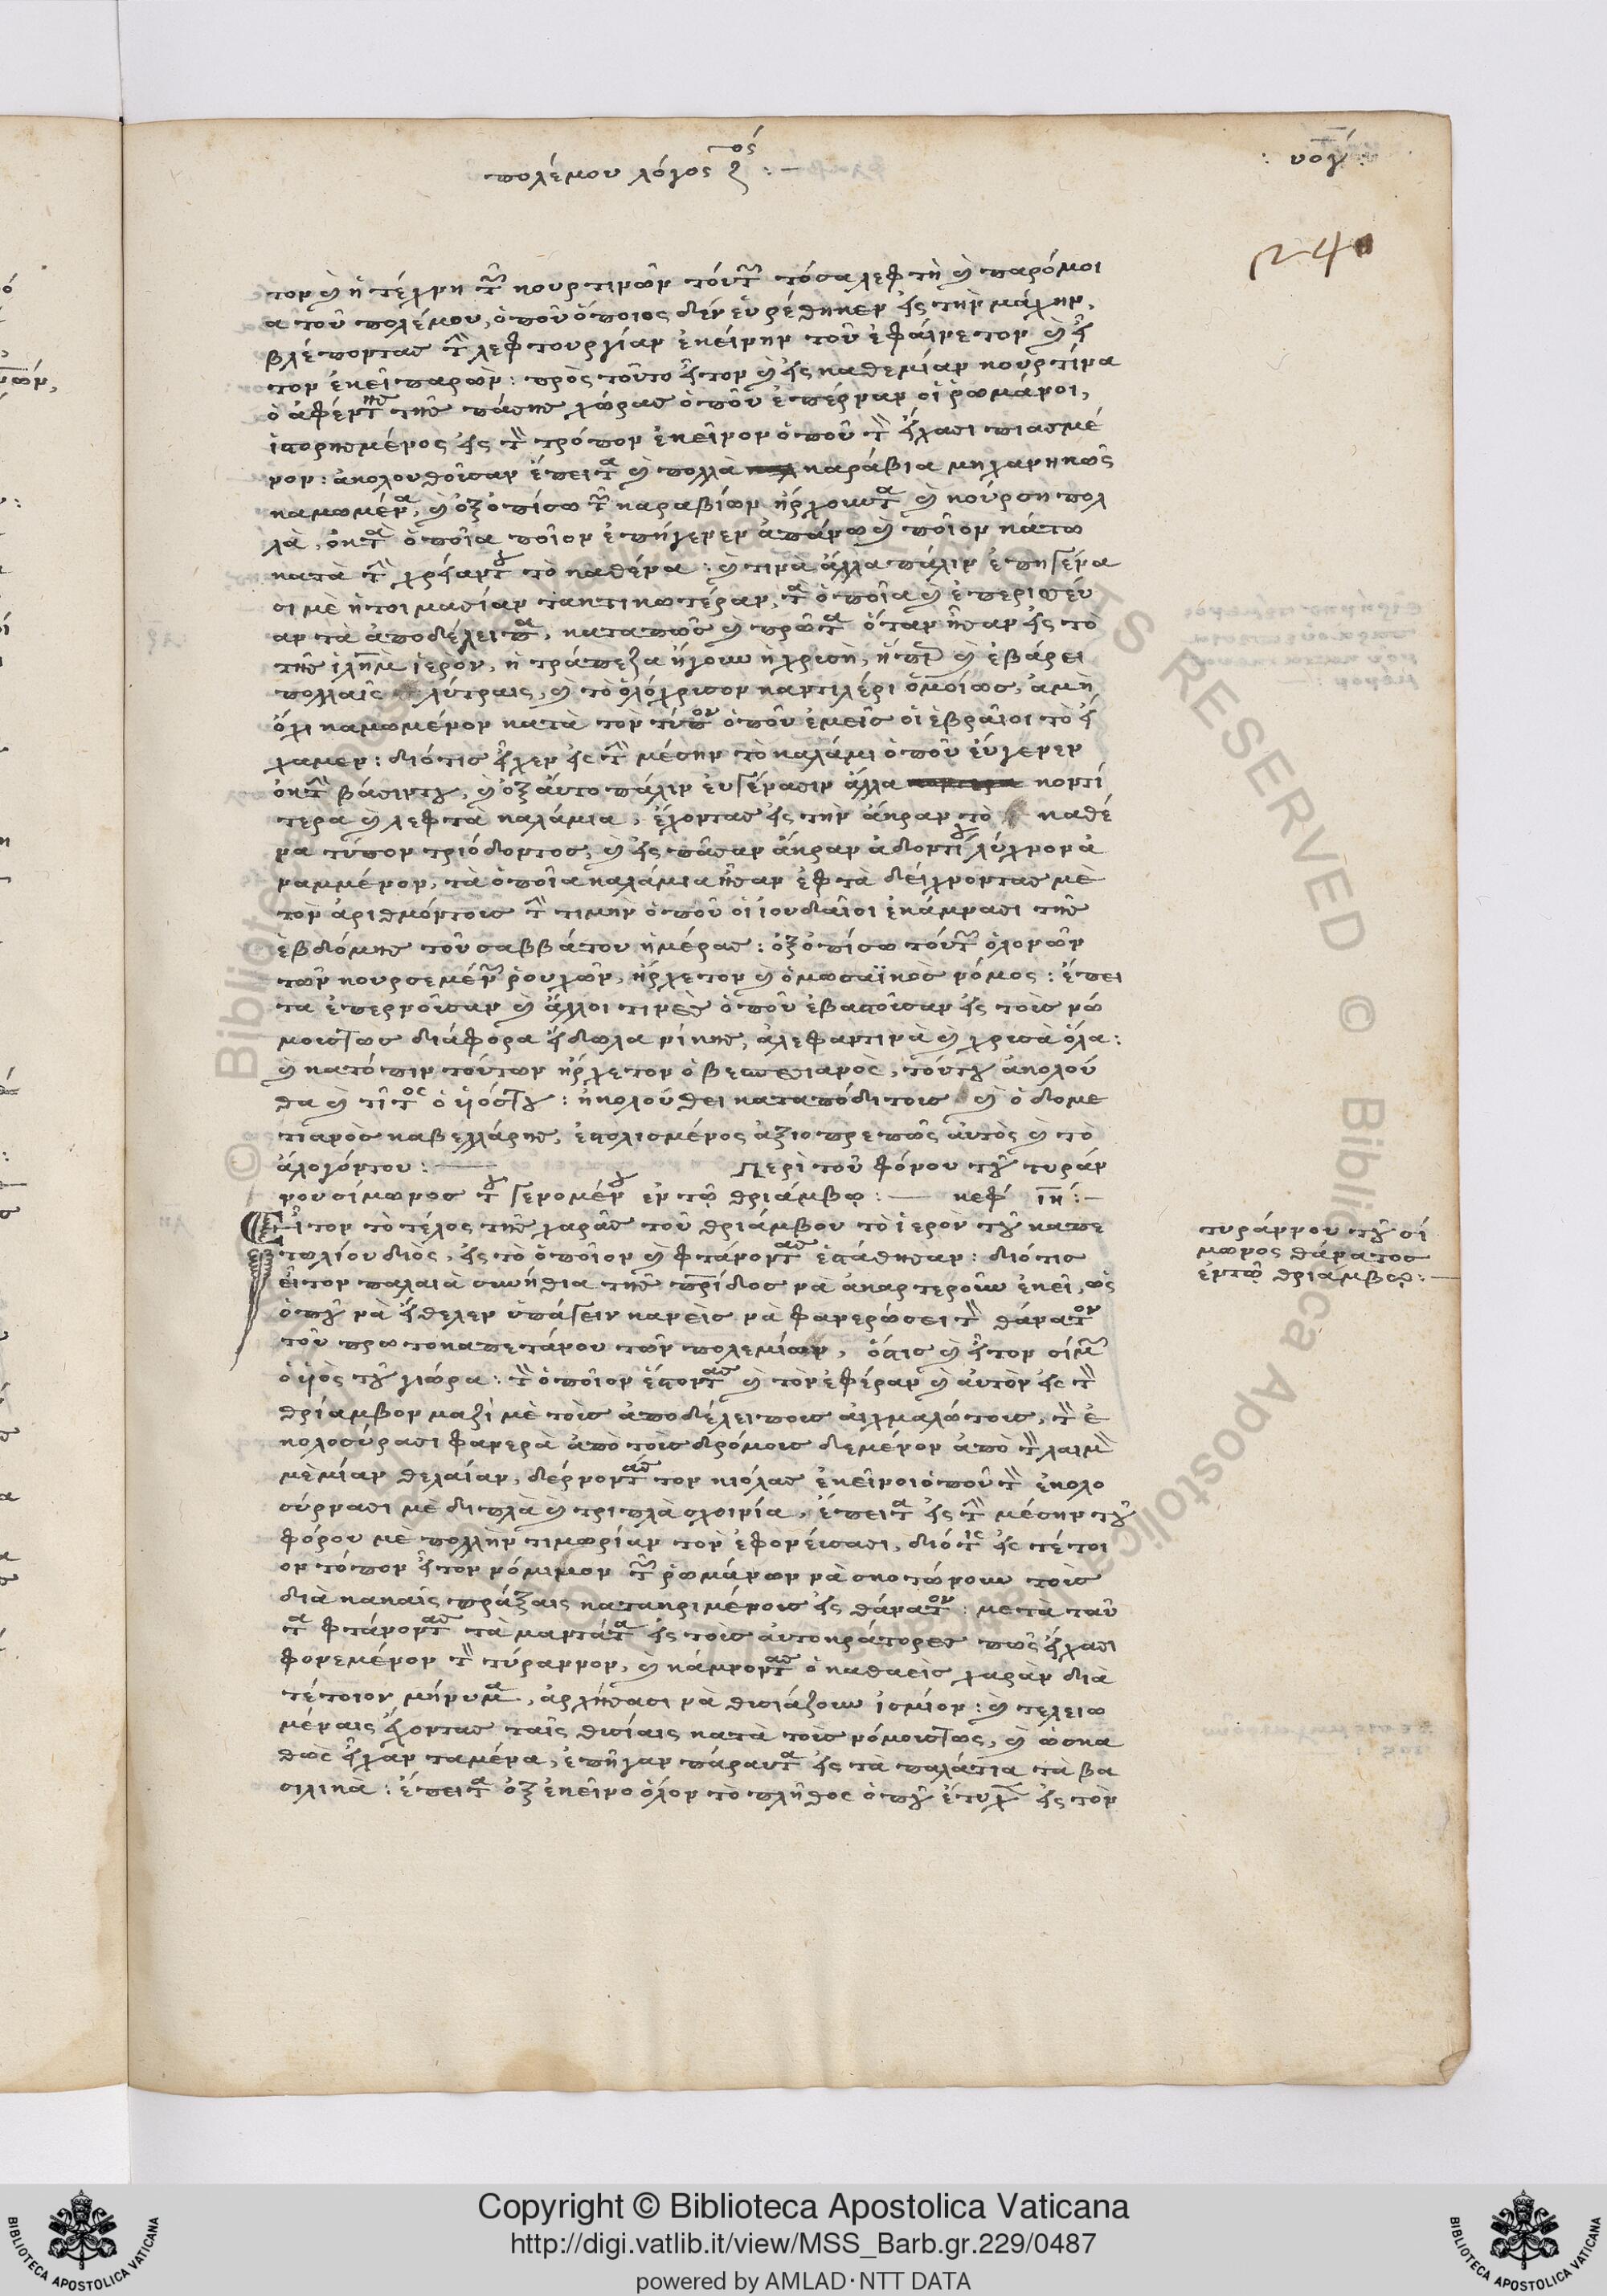 πολέμου λόγος ζ^ος :—
: υογ :
240
τον καὶ ἡ τέχνη τῶν κουρτινῶν τούτων τόσα λεφτὴ καὶ παρόμοι
α τοῦ πολέμου, ὁποῦ ὅποιος δὲν εὑρέθηκεν εἰς τὴν μάχην,
βλέποντας τὴν λεφτουργίαν ἐκείνην τοῦ ἐφαίνετον καὶ εἶ
τον ἐκεῖ παρών: πρὸς τοῦτο εἶτον καὶ εἰς καθεμίαν κουρτίνα
ὁ ἀφέντης τῆς πάσης χώρας ὁποῦ ἐπέρναν οἱ ῥωμάνοι,
ἱστορησμένος εἰς τὸν τρόπον ἐκεῖνον ὁποῦ τὸν εἴχασι πιασμέ
νον: ἀκολουθοῦσαν ἔπειτα καὶ πολλὰ καράβια μηχανικῶς
καμωμένα, καὶ ὀξοπίσω τῶν καραβίων ἤρχουντα καὶ κούρση πολ
λὰ, ὀκτα ὁποῖα ποῖον ἐπήγενεν ἀπάνω καὶ ποῖον κάτω
κατὰ τὴν χρείαν του τὸ καθένα: καὶ τινὰ ἄλλα πάλιν ἐπηγένα
σι μὲ ἡτοιμασίαν τακτικωτέραν, τὰ ὁποῖα καὶ ἐπερισεύ
αν τὰ ἀποδέλειπα, καταπῶς καὶ πρῶτα ὅταν ἦσαν εἰς τὸ
τῆς ἱλημ ἱερὸν, ἡ τράπεζα ἤγουν ἡ χρισὴ, ἥτις καὶ ἐβάρει
πολλαῖς λύτραις, καὶ τὸ ὁλόχρισον καντιλέρι ὁμοίως, ἀμὴ
ὄχι καμωμένον κατὰ τὸν τύπον ὁποῦ ἐμεῖς οἱ ἑβραῖοι τὸ εἴ
χαμεν: διότις εἶχεν εἰς τὴν μέσην τὸ καλάμι ὁποῦ εὔγενεν
ὀκτὴν βάσιντου, καὶ ὀξ αὐτο πάλιν ευγένασιν ἄλλα κοντί
τερα καὶ λεφτὰ καλάμια, ἔχοντας εἰς τὴν ἄκραν τὸ καθέ
να τύπον τριόδοντος, καὶ εἰς πᾶσαν ἄκραν ἀδοντίου λύχνον ἀ
ναμμένον, τὰ ὁποῖα καλάμια ἦσαν ἐφτὰ δείχνοντας μὲ
τὸν ἀριθμόντους τὴν τιμὴν ὁποῦ οἱ ἰουδαῖοι ἐκάμνασι τῆς
ἑβδόμης τοῦ σαββάτου ἡμέρας: ὀξοπίσω τούτων ὁλονῶν
τῶν κουρσεμένων ῥουχῶν, ἤρχετον καὶ ὁ μωσαϊκὸς νόμος: ἔπει
τα ἐπερνοῦσαν καὶ ἄλλοι τινὲς ὁποῦ ἐβαστοῦσαν εἰς τοὺς νώ
μουςτως διάφορα εἴδωλα νίκης, ἀλεφαντινὰ καὶ χρισὰ ὅλα:
καὶ κατόπιν τούτων ἤρχετον ὁ βεσπεσιανὸς, τούτου ἀκολού
θα καὶ τίτος ὁ ὑιόςτου: ἠκολούθει καταπόδιτους καὶ ὁ δομε
τιανὸς καβελλάρης, ἐστολισμένος ἀξιοπρεπῶς αὐτὸς καὶ τὸ
ἄλογόντου: — Περὶ τοῦ φόνου τοῦ τυράν
νου σίμωνος τοῦ γενομένου ἐν τῷ θριάμβῳ: — κεφ ιη: —
Εἶτον τὸ τέλος τῆς χαρᾶς τοῦ θριάμβου τὸ ἱερὸν τοῦ καπε
τωλίου διὸς, εἰς τὸ ὁποῖον καὶ φτάνοντας ἐστάθησαν: διότις
εἶτον παλαιὰ συνήθια τῆς πρίδος νὰ ἀναντεροῦν ἐκεῖ, ὡς
ὁποῦ νὰ εἴθελεν ὑπάγειν κανεὶς νὰ φανερώσει τὸν θάνατον
τοῦ πρωτοκαπετάνου τῶν πολεμίων, ὅστις καὶ εἶτον σίμων
ὁ ὑιὸς τοῦ γιώρα: τὸν ὁποῖον ἔστοντας καὶ τὸν ἐφέραν καὶ αὐτὸν εἰς τὸν
θρίαμβον μαζὶ μὲ τοὺς ἀποδέλειπους αἰχμαλώτους, τὸν ἐ
κολοσύρασι φανερὰ ἀπὸ τοὺς δρόμους δεμένον ἀπὸ τὸν λαιμὸν
μὲ μίαν θελαίαν, δέρνοντας τον κιόλας ἐκεῖνοι ὁποῦ τὸν ἐκολο
σύρνασι μὲ διπλὰ καὶ τριπλὰ σχοινία, ἔπειτα εἰς τὴν μέσην τοῦ
φόρου μὲ πολλὴν τιμωρίαν τὸν ἐφονεύσασι, διότις εἰς τέτοι
ον τόπον εἶτον νόμιμον τῶν ῥωμάνων νὰ σκοτώνουν τοὺς
διὰ κακαὶς πράξαις κατακριμένους εἰς θάνατον: μετὰ ταῦ
τα φτάνοντας τὰ μαντάτα εἰς τοὺς αὐτοκράτορες πῶς εἴχασι
φονεμένον τὸν τύραννον, καὶ κάμνοντας ὁ καθαεὶς χαρὰν διὰ
τέτοιον μήνυμα, ἀρχήσασι νὰ θισιάζουν ἰσμίον: καὶ τελειω
μέναις ἔχοντας ταῖς θισίαις κατὰ τοὺς νόμουςτως, καὶ ὡσκα
θῶς εἶχαν ταμένα, ἐπῆγαν πάραυτα εἰς τὰ παλάτια τὰ βα
σιλικὰ: ἔπειτα ὀξ ἐκεῖνο ὅλον τὸ πλῆθος ὁποῦ ἔτυχεν εἰς τὸν
τυράννου τοῦ σί
μωνος θάνατος
ἐν τῷ θριάμβῳ: —
Copyright © Biblioteca Apostolica Vaticana
http://digi.vatlib.it/view/MSS_Barb.gr.229/0487
powered by AMLAD·NTT DATA
BIBLIOTECA APOSTOLICA VATICANA
BIBLIOTECA APOSTOLICA VATICANA